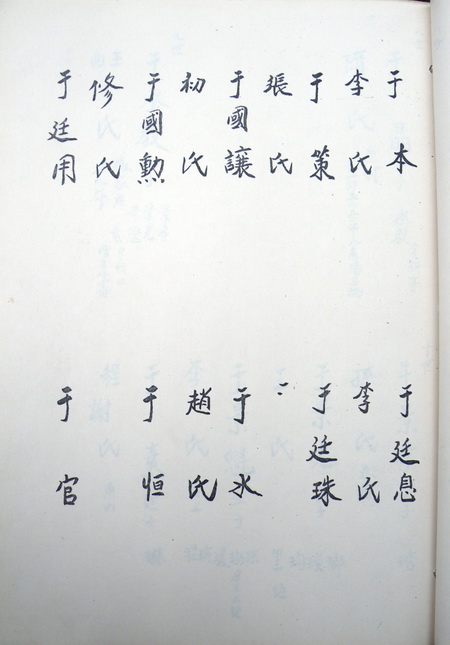 于本
李氏
于策
張氏
于國讓
初氏
于國勲
修氏
于廷用
于廷息
李氏
于廷珠
于水
趙氏
于恒
于官